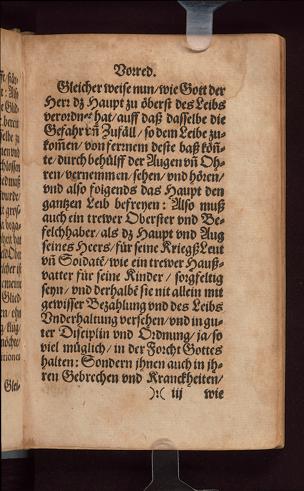 Vorred.
Gleicher weise nun / wie Gott der
Herr dz Haupt zu öberst des Leibs
verordnet hat / auff daß dasselbe die
Gefahr vñ Zufäll / so dem Leibe zu-
kom̃en / von fernem deste baß kön̄-
te / durch behülff der Augen vñ Oh-
ren / vernemmen / sehen / vnd hören /
vnd also folgends das Haupt den
gantzen Leib befreyen: Also muß
auch ein trewer Oberster vnd Be-
felchhaber / als dz Haupt vnd Aug
seines Heers / für seine Kriegßleut
vñ Soldatē / wie ein trewer Hauß-
vatter für seine Kinder / sorgfeltig
seyn / vnd derhalbē sie nit allein mit
gewisser Bezahlung vnd des Leibs
Vnderhaltung versehen / vnd in gu-
ter Disciplin vnd Ordnung / ja / so
viel müglich / in der Forcht Gottes
halten: Sondern jhnen auch in jh-
ren Gebrechen vnd Kranckheiten /
):( iij wie